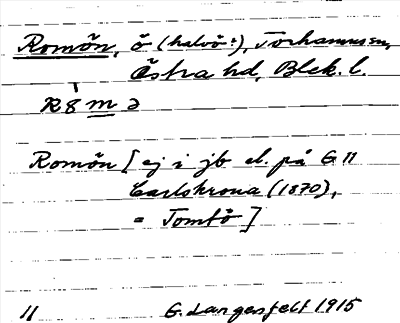 Romön, ö (halvö?), Torhamns sn,
Östra hd, Blek. l.
R8m2
Romön [ej i jb el. på G 11
Carlskrona (1870),
= Tomtö]
11 G. Langenfelt 1915